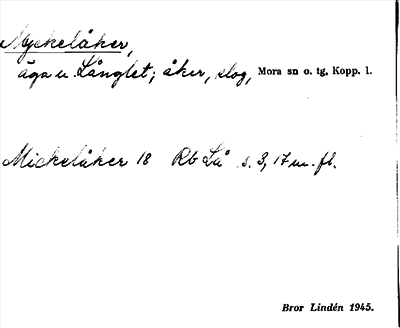 Myckelåker,
äga u. Långlet; åker, slog, Mora sn o. tg, Kopp. l.
Mickelåker 18 Rb Lå s. 3, 17 m. fl.
Bror Lindén 1945.